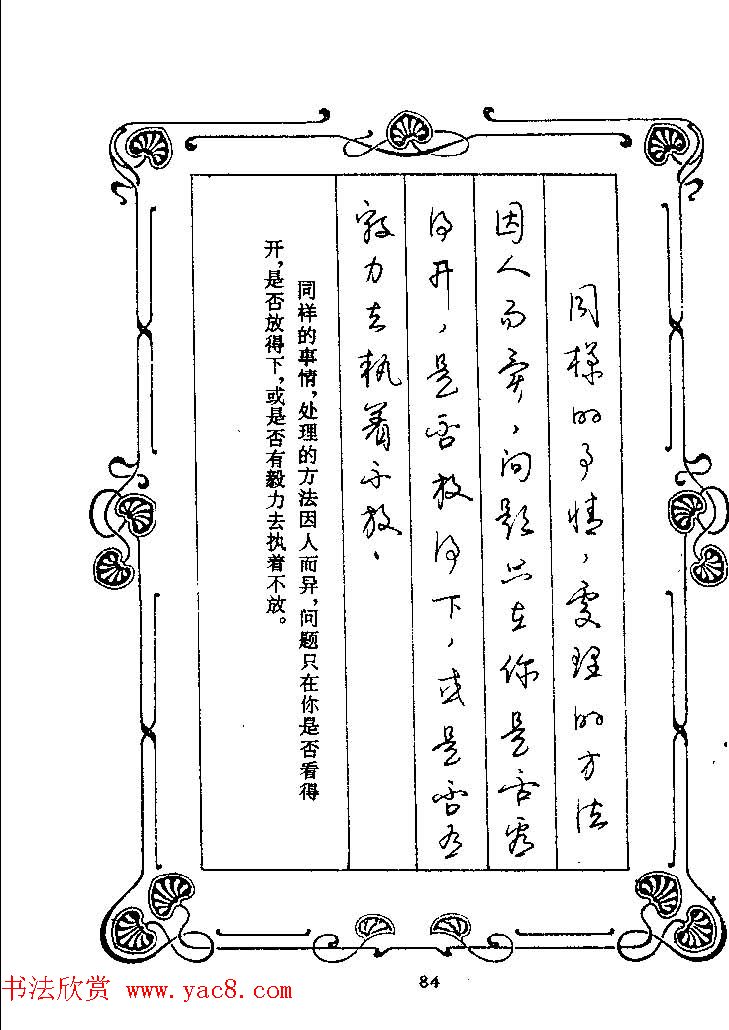 同样的事情，处理的方法
因人而异，问题只在你是否看
得开，是否放得下，或是否有
毅力去执着不放。
同样的事情，处理的方法因人而异，问题只在你是否看得
开，是否放得下，或是否有毅力去执着不放。
84
书法欣赏 www.yac8.com